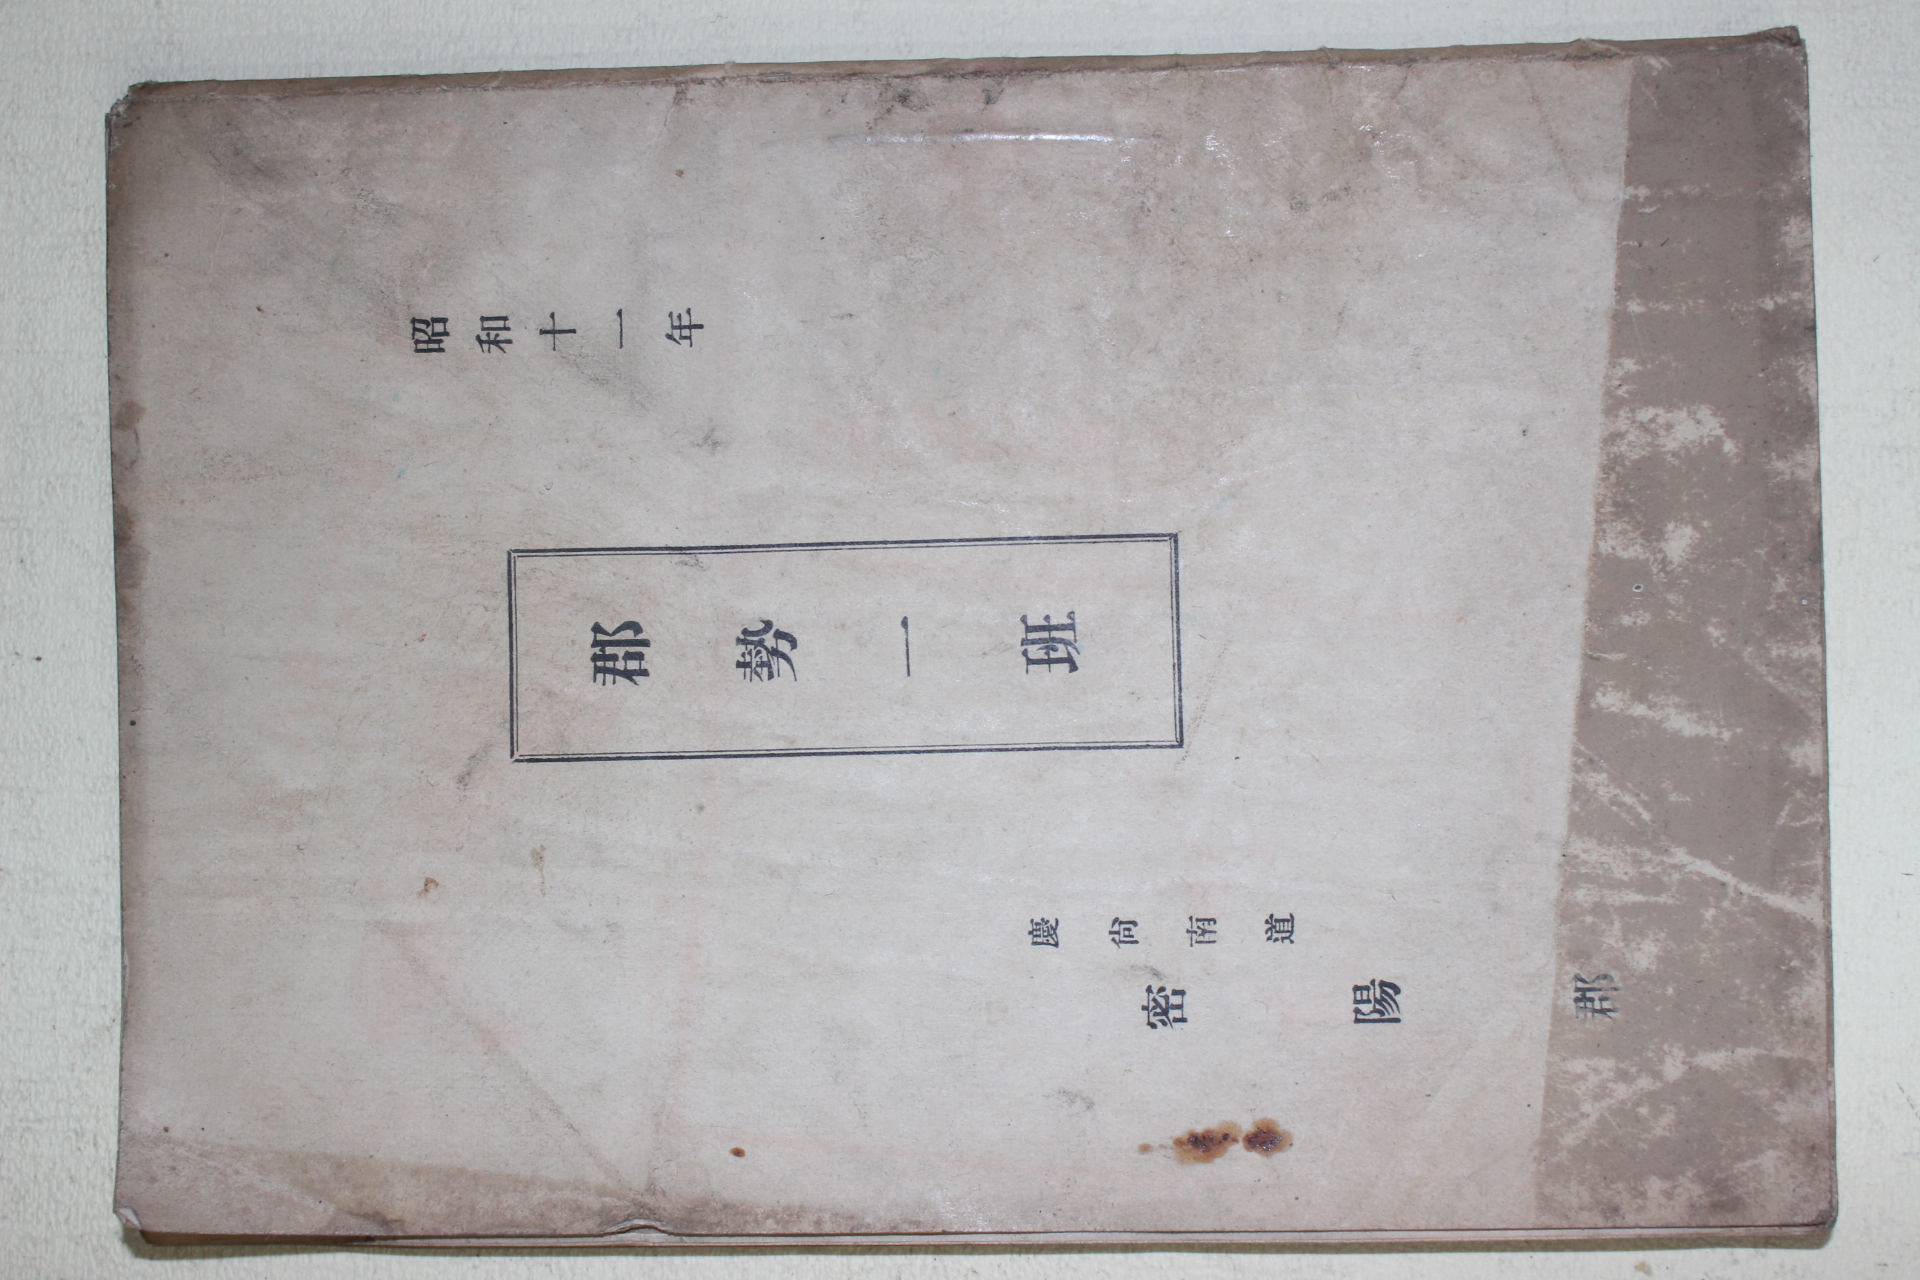 昭和十一年
郡勢一班
慶尙南道
密陽郡